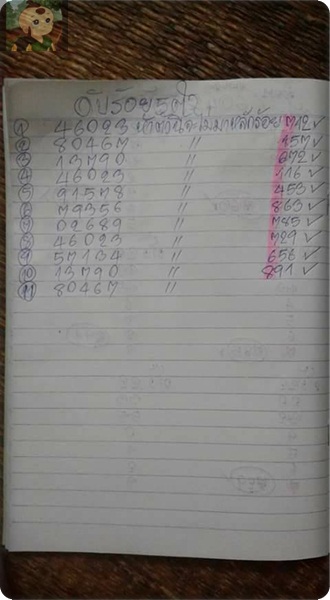 ดับร้อย5ตัว
① 46023 ห้าตัวนี้จะไม่มาหลักร้อย 742 ✓
② 80467 " 157 ✓
③ 13790 " 672 ✓
④ 46023 " 116 ✓
⑤ 91578 " 453 ✓
⑥ 79356 " 863 ✓
⑦ 02689 " 785 ✓
⑧ 46023 " 729 ✓
⑨ 57134 " 656 ✓
⑩ 13790 " 891 ✓
⑪ 80467 "